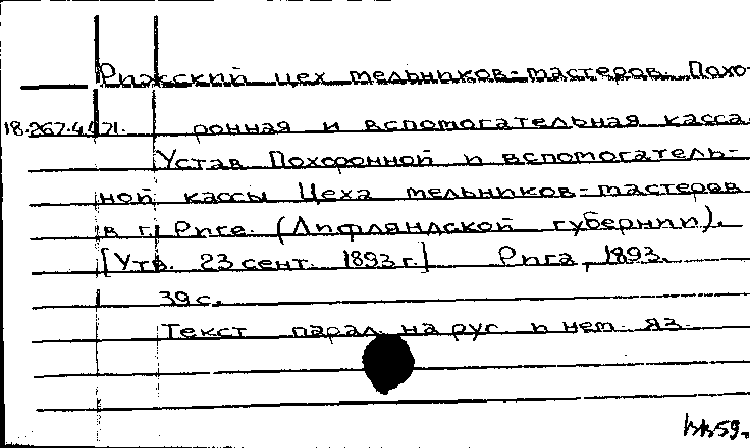 Рижский цех мельников-мастеров. Похо-
18.267.4.471. ронная и вспомогательная касса.
Устав Похоронной и вспомогатель-
ной кассы Цеха мельников-мастеров
в г. Риге. (Лифляндской губернии).
[Утв. 23 сент. 1893 г.] Рига, 1893.
39 с.
Текст парал. на рус. и нем. яз.